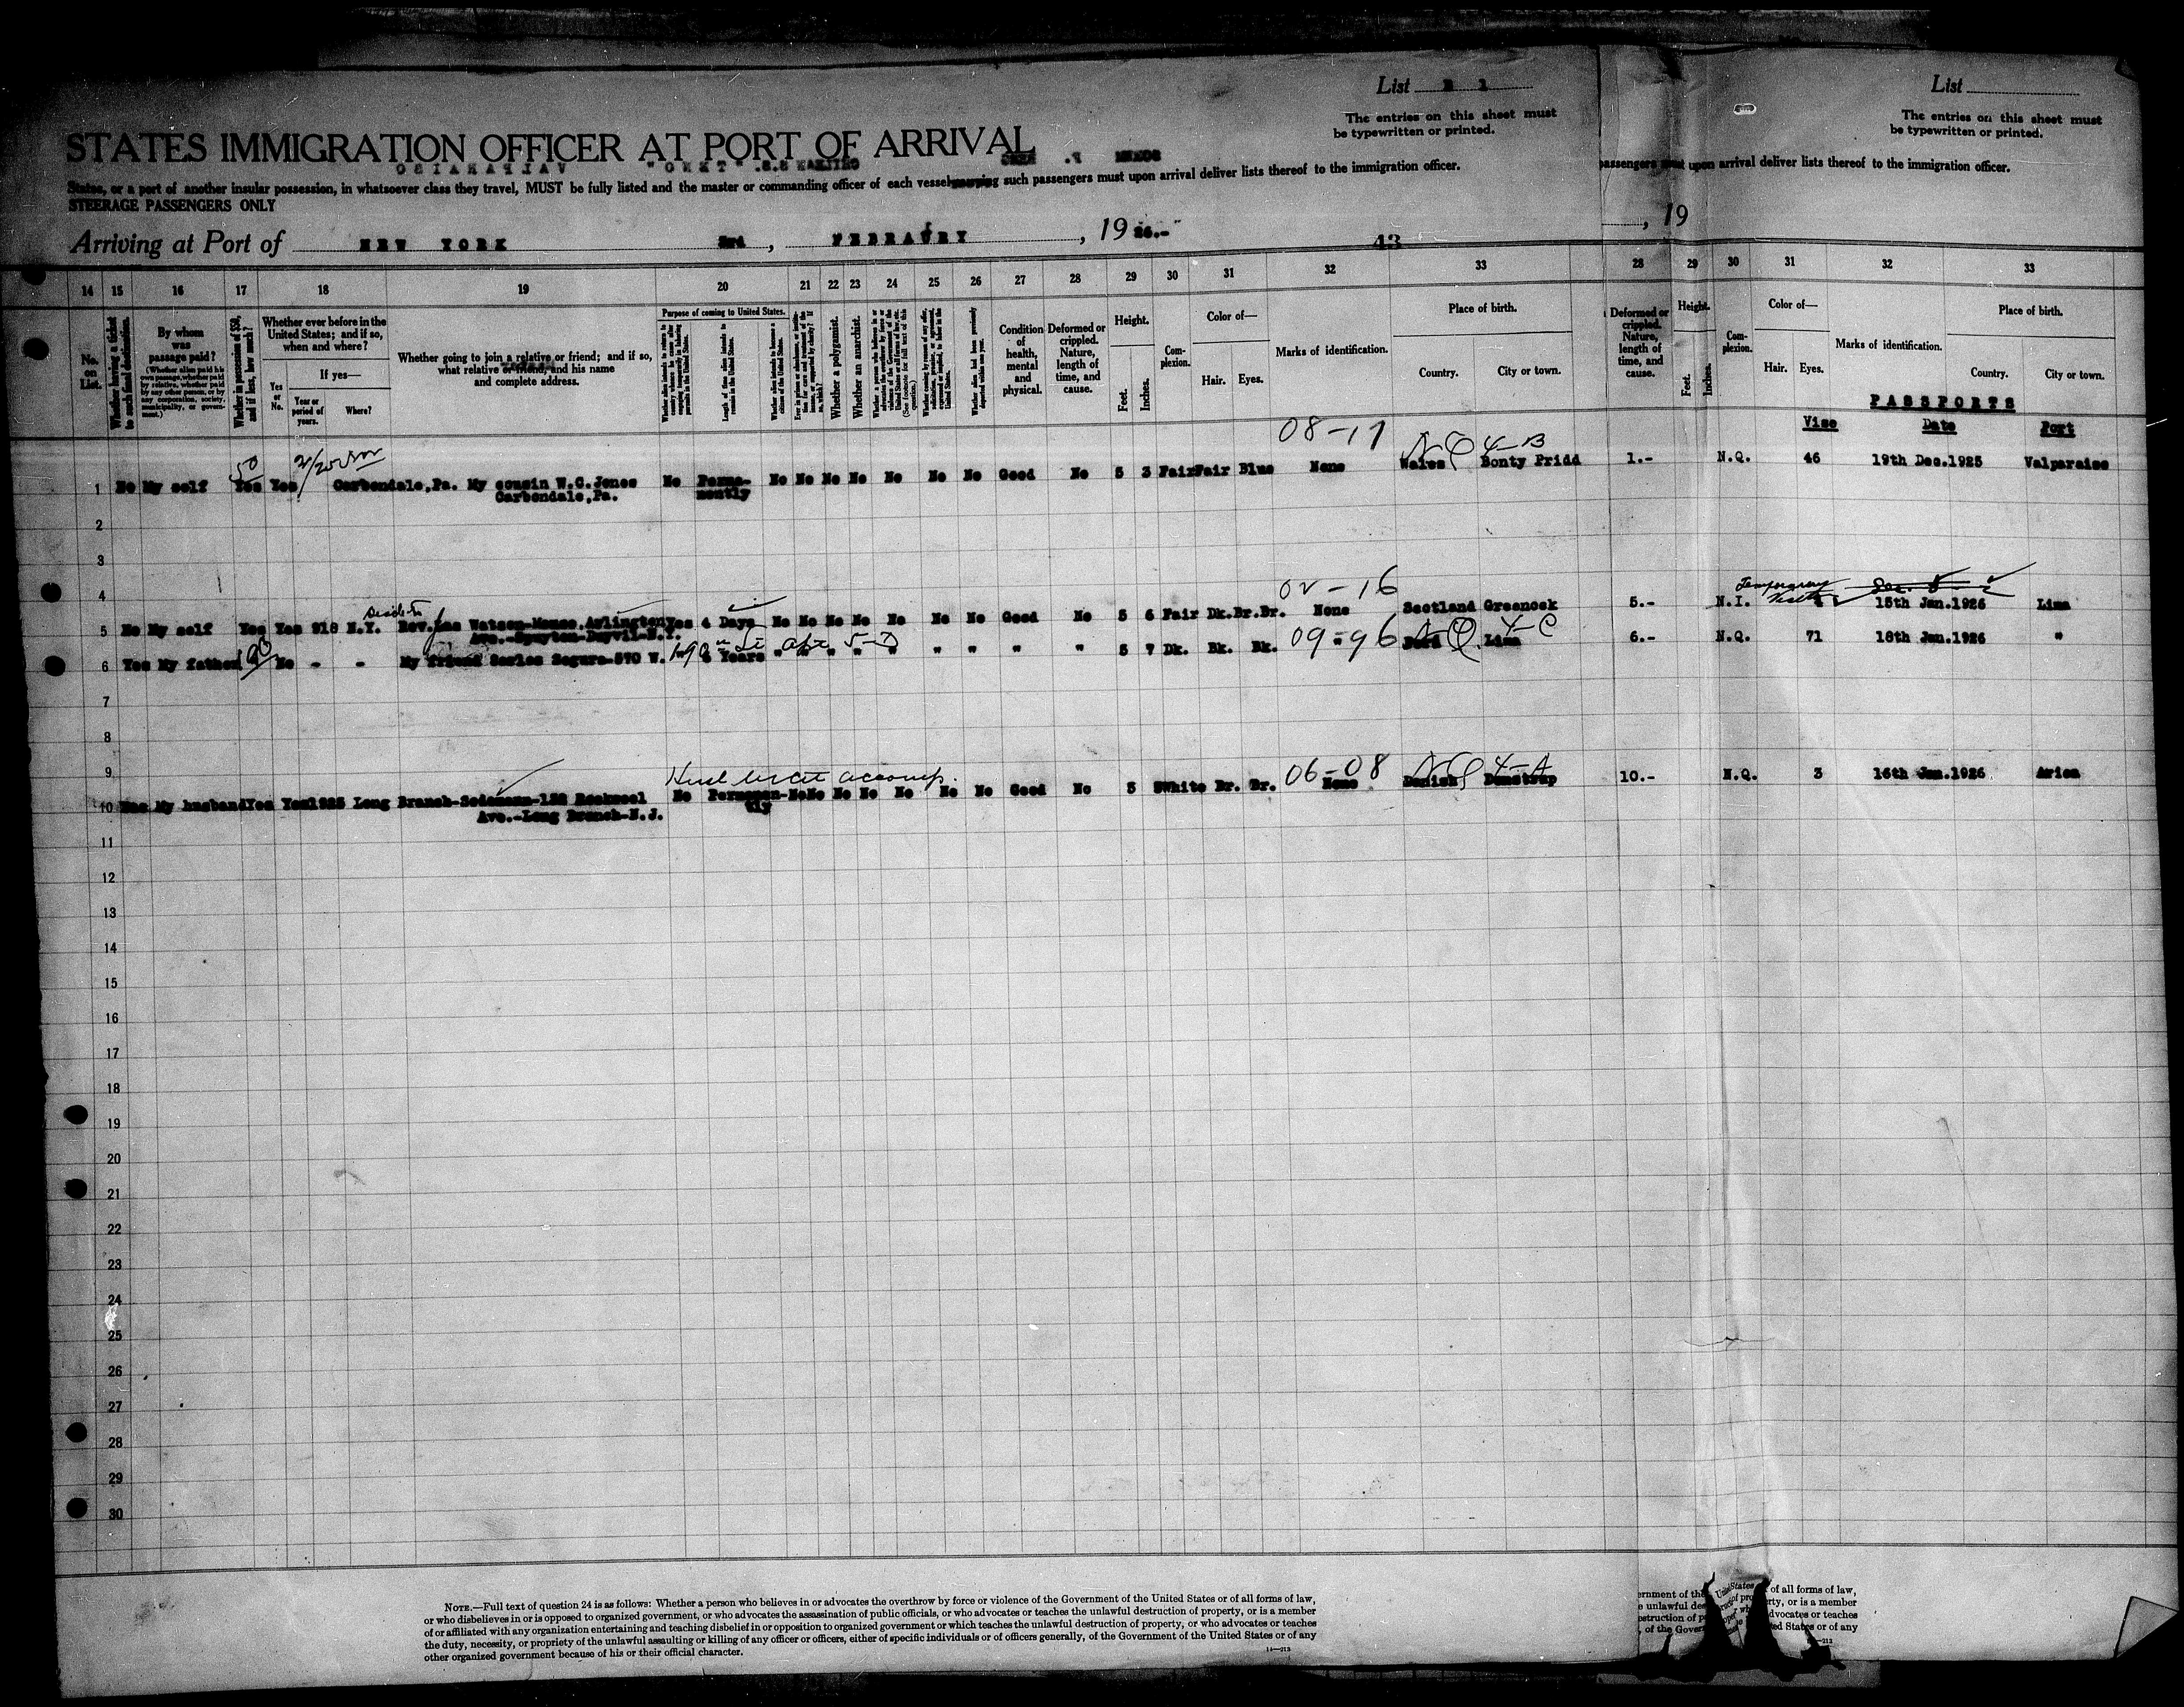 List 1
The entries on this sheet must
be typewritten or printed.
List
The entries on this sheet must
be typewritten or printed.
STATES IMMIGRATION OFFICER AT PORT OF ARRIVAL
States, or a port of another insular possession, in whatsoever class they travel, MUST be fully listed and the master or commanding officer of each vessel such passengers must upon arrival deliver lists thereof to the immigration officer.
passengers must upon arrival deliver lists thereof to the immigration officer.
STEERAGE PASSENGERS ONLY
Arriving at Port of NEW YORK 3rd, FEBRAURY, 1926.-
, 19
43
14 15 16 17 18 19 20 21 22 23 24 25 26 27 28 29 30 31 32 33
28 29 30 31 32 33
No. on List.
Whether having a ticket to such final destination.
By whom was passage paid?
(Whether alien paid his own passage, whether paid by relative, whether paid by any other person, or by any corporation, society, municipality, or government.)
Whether in possession of $50, and if less, how much?
Whether ever before in the United States; and if so, when and where?
If yes—
Yes or No.
Year or period of years.
Where?
Whether going to join a relative or friend; and if so, what relative or friend, and his name and complete address.
Purpose of coming to United States.
Length of time alien intends to remain in the United States.
Whether alien intends to become a citizen of the United States.
Whether a polygamist.
Whether an anarchist.
Condition of health, mental and physical.
Deformed or crippled. Nature, length of time, and cause.
Height.
Feet. Inches.
Complexion.
Color of—
Hair. Eyes.
Marks of identification.
Place of birth.
Country. City or town.
Deformed or crippled. Nature, length of time, and cause.
Height.
Feet. Inches.
Complexion.
Color of—
Hair. Eyes.
Marks of identification.
Place of birth.
Country. City or town.
PASSPORTS
Vise Date Port
08-17 NQ 4-B
50
1 No My self Yes Yes Carbondale,Pa. My cousin W.C.Jones No Perma- No No No No No No No Good No 5 3 Fair Fair Blue None Wales Bonty Pridd 1.- N.Q. 46 19th Dec.1925 Valparaiso
Carbondale,Pa. nently
2
3
4
02-16
Temporary
5 No My self Yes Yes 918 N.Y. Rev. Watson-Mouse.Arlington Yes 4 Days No No No No No No No Good No 5 6 Fair Dk.Br.Br. None Scotland Greenock 5.- N.I. 15th Jan.1926 Lima
Ave.-Spuyten-Duyvil-N.Y.
09-96 4-C
6 Yes My father No - - My friend Segura-570 W. Years " " " " " " " " " 5 7 Dk. Bk. Bk. Lima 6.- N.Q. 71 18th Jan.1926 "
7
8
9
accomp. 06-08 NQ 4-A
10 My husband Yes Yes 1925 Long Branch- No Permanen- No No No No No No No Good No 5 White Br. Br. None Danish 10.- N.Q. 3 16th Jan.1926 Arica
Ave.-Long Branch-N.J. tly
11
12
13
14
15
16
17
18
19
20
21
22
23
24
25
26
27
28
29
30
NOTE.—Full text of question 24 is as follows: Whether a person who believes in or advocates the overthrow by force or violence of the Government of the United States or of all forms of law,
or who disbelieves in or is opposed to organized government, or who advocates the assassination of public officials, or who advocates or teaches the unlawful destruction of property, or is a member
of or affiliated with any organization entertaining and teaching disbelief in or opposition to organized government or which teaches the unlawful destruction of property, or who advocates or teaches
the duty, necessity, or propriety of the unlawful assaulting or killing of any officer or officers, either of specific individuals or of officers generally, of the Government of the United States or of any
other organized government because of his or their official character.
14—213